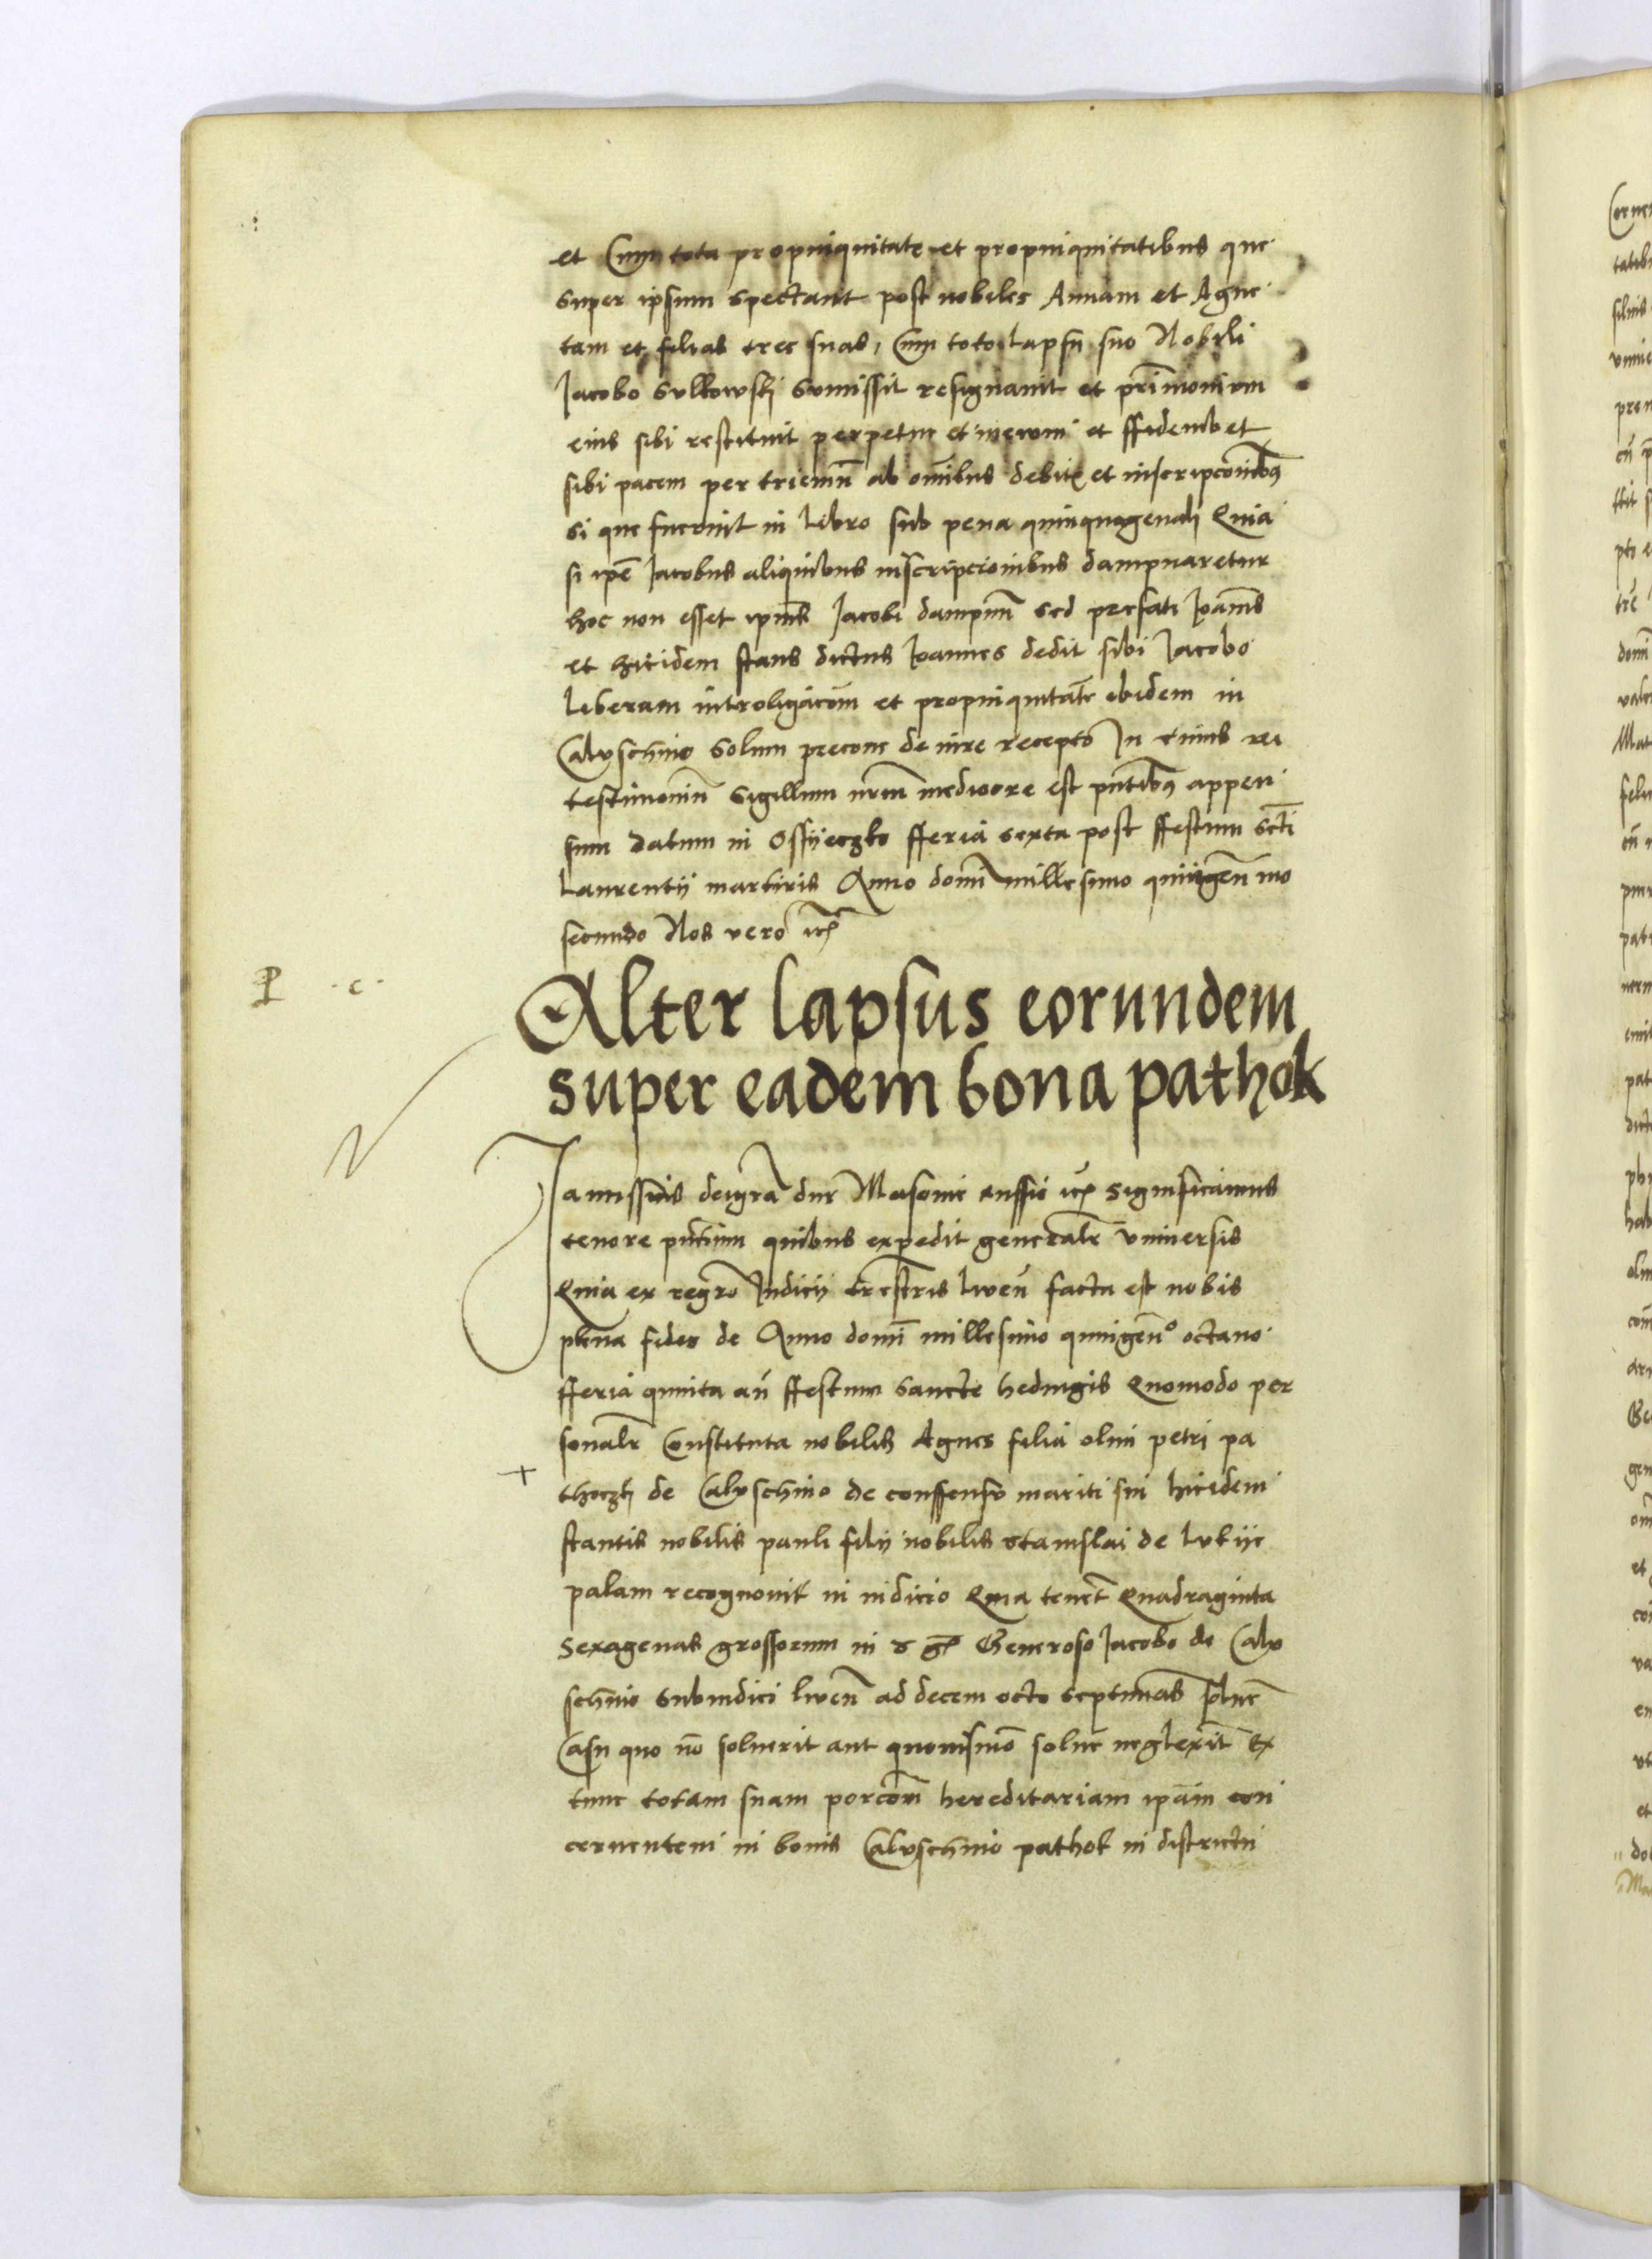 et Cum tota propinquitate et propinquitatibus que
super ipsum spectant post nobiles Annam et Agne
tam et filias tres suas, Cum toto lapsu suo Nobili
Jacobo Sulkowskj submissit resignavit et prīmonium
eius sibi restituit perpetue et in evum et ffideiubet
sibi pacem per trieniū ab om̄ibus debitis et inscripcōnibꝫ
si que fuerint in libro sub pena quinquagenali Quia
si ip̄e Jacobus aliquibus inscripcionibus dampnaretur
hoc non esset ip̄ius Jacobi dampnū sed prefati Joānis
et hicidem stans dictus Joannes dedit sibi Jacobo
liberam introligacōm et propinquitatē ibidem in
Caluschino solum precone de iure recepto In cuius rei
testimoniū Sigillum nrm̄ mediocre est pn̄tibꝫ appen
sum datum in Ossyeczko fferia sexta post ffestum Scti
Laurentij martiris Anno domī millesimo quīgen̄mo
secundo Nos vero ecꝫ
P · c ·
Alter lapsus eorundem
super eadem bona pathok
Janussius dei gr̄a dux Masovie russie ecꝫ significamus
tenore pn̄tium quibus expedit generalr̄ vniversis
Quia ex regr̄o Judicij trestris liven̄ facta est nobis
plena fides de Anno domī millesimo quigen̄o octavo
fferia quinta an̄ ffestum Sancte hedvigis Quomodo per
sonalr̄ Constituta nobilis Agnes filia olim petri pa
thoczkj de Caluschino de conssensu mariti sui hicidem
stantis nobilis pauli filij nobilis Stanislai de lukijc
palam recognovit in iudicio Quia tenet Quadraginta
Sexagenas grossorum in Generoso Jacobo de Calu
schino Subiudici liven̄ ad decem octo septimas solue
Casu quo nō soluerit aut quovismō solue neglexit Ex
tunc totam suam porcōm hereditariam ip̄am con
cernentem in bonis Caluschino pathok in districtu